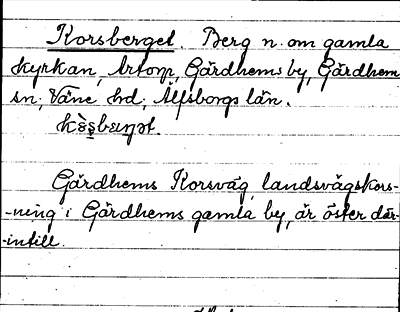 Korsberget. Berg n. om gamla
kyrkan, Artorp, Gärdhems by, Gärdhem
sn; Väne hd, Älfsborgs län.
Gärdhems Korsväg, landsvägskors-
-ning i Gärdhems gamla by, är öster där-
-intill.